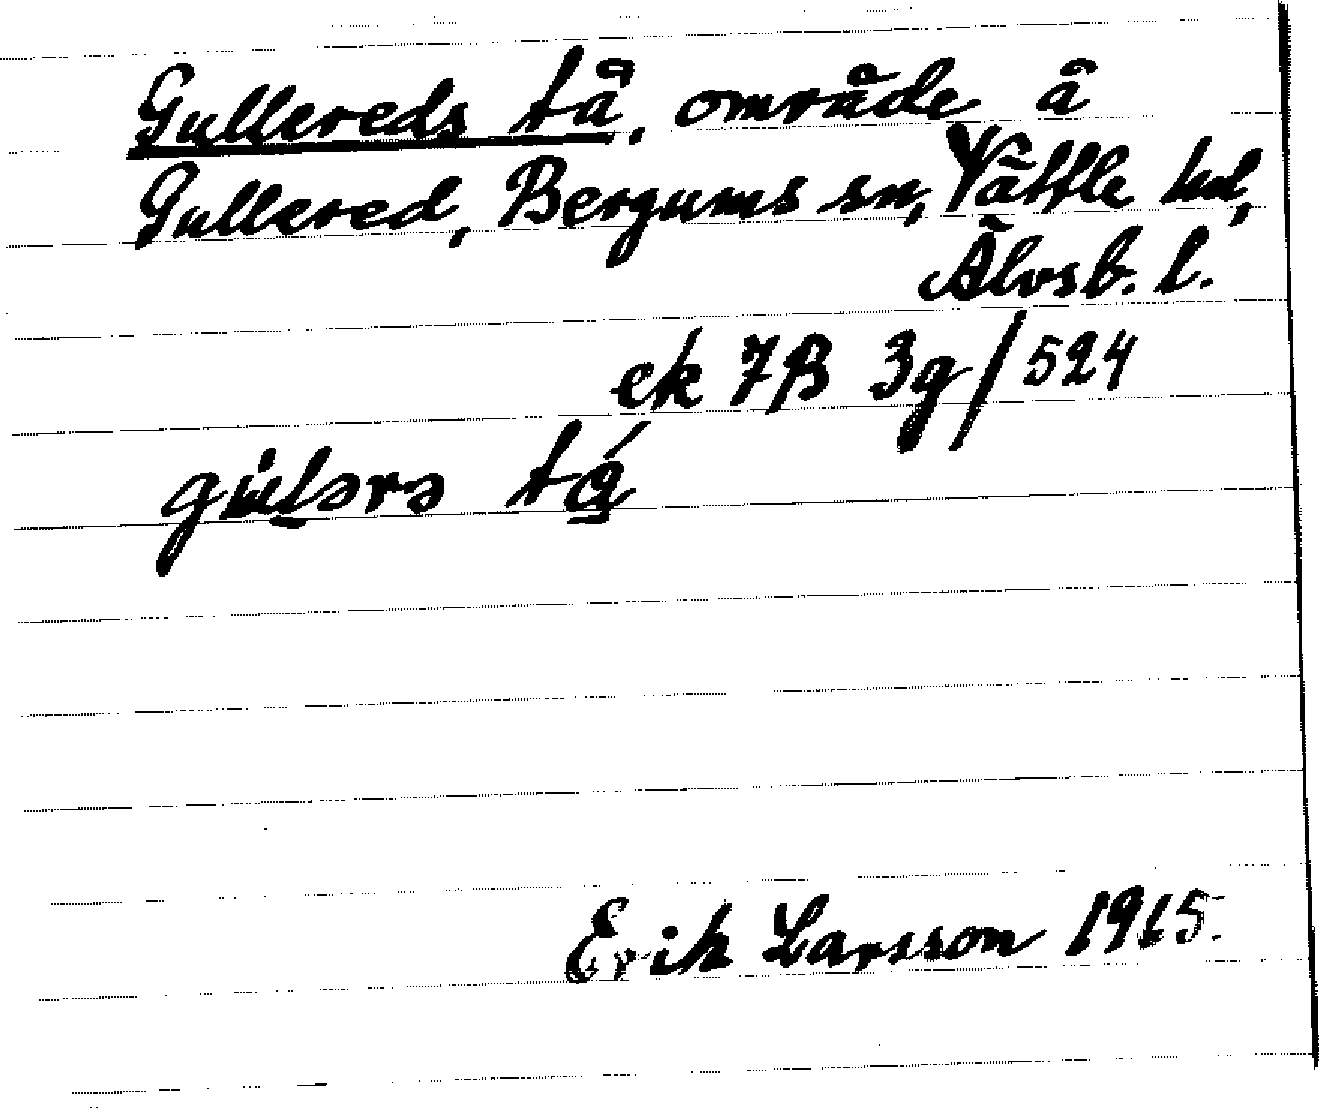 Gullereds tå, område å
Gullered, Bergums sn, Vättle hd,
Älvsb. l.
ek 7B 3g/524
Erik Larsson 1965.